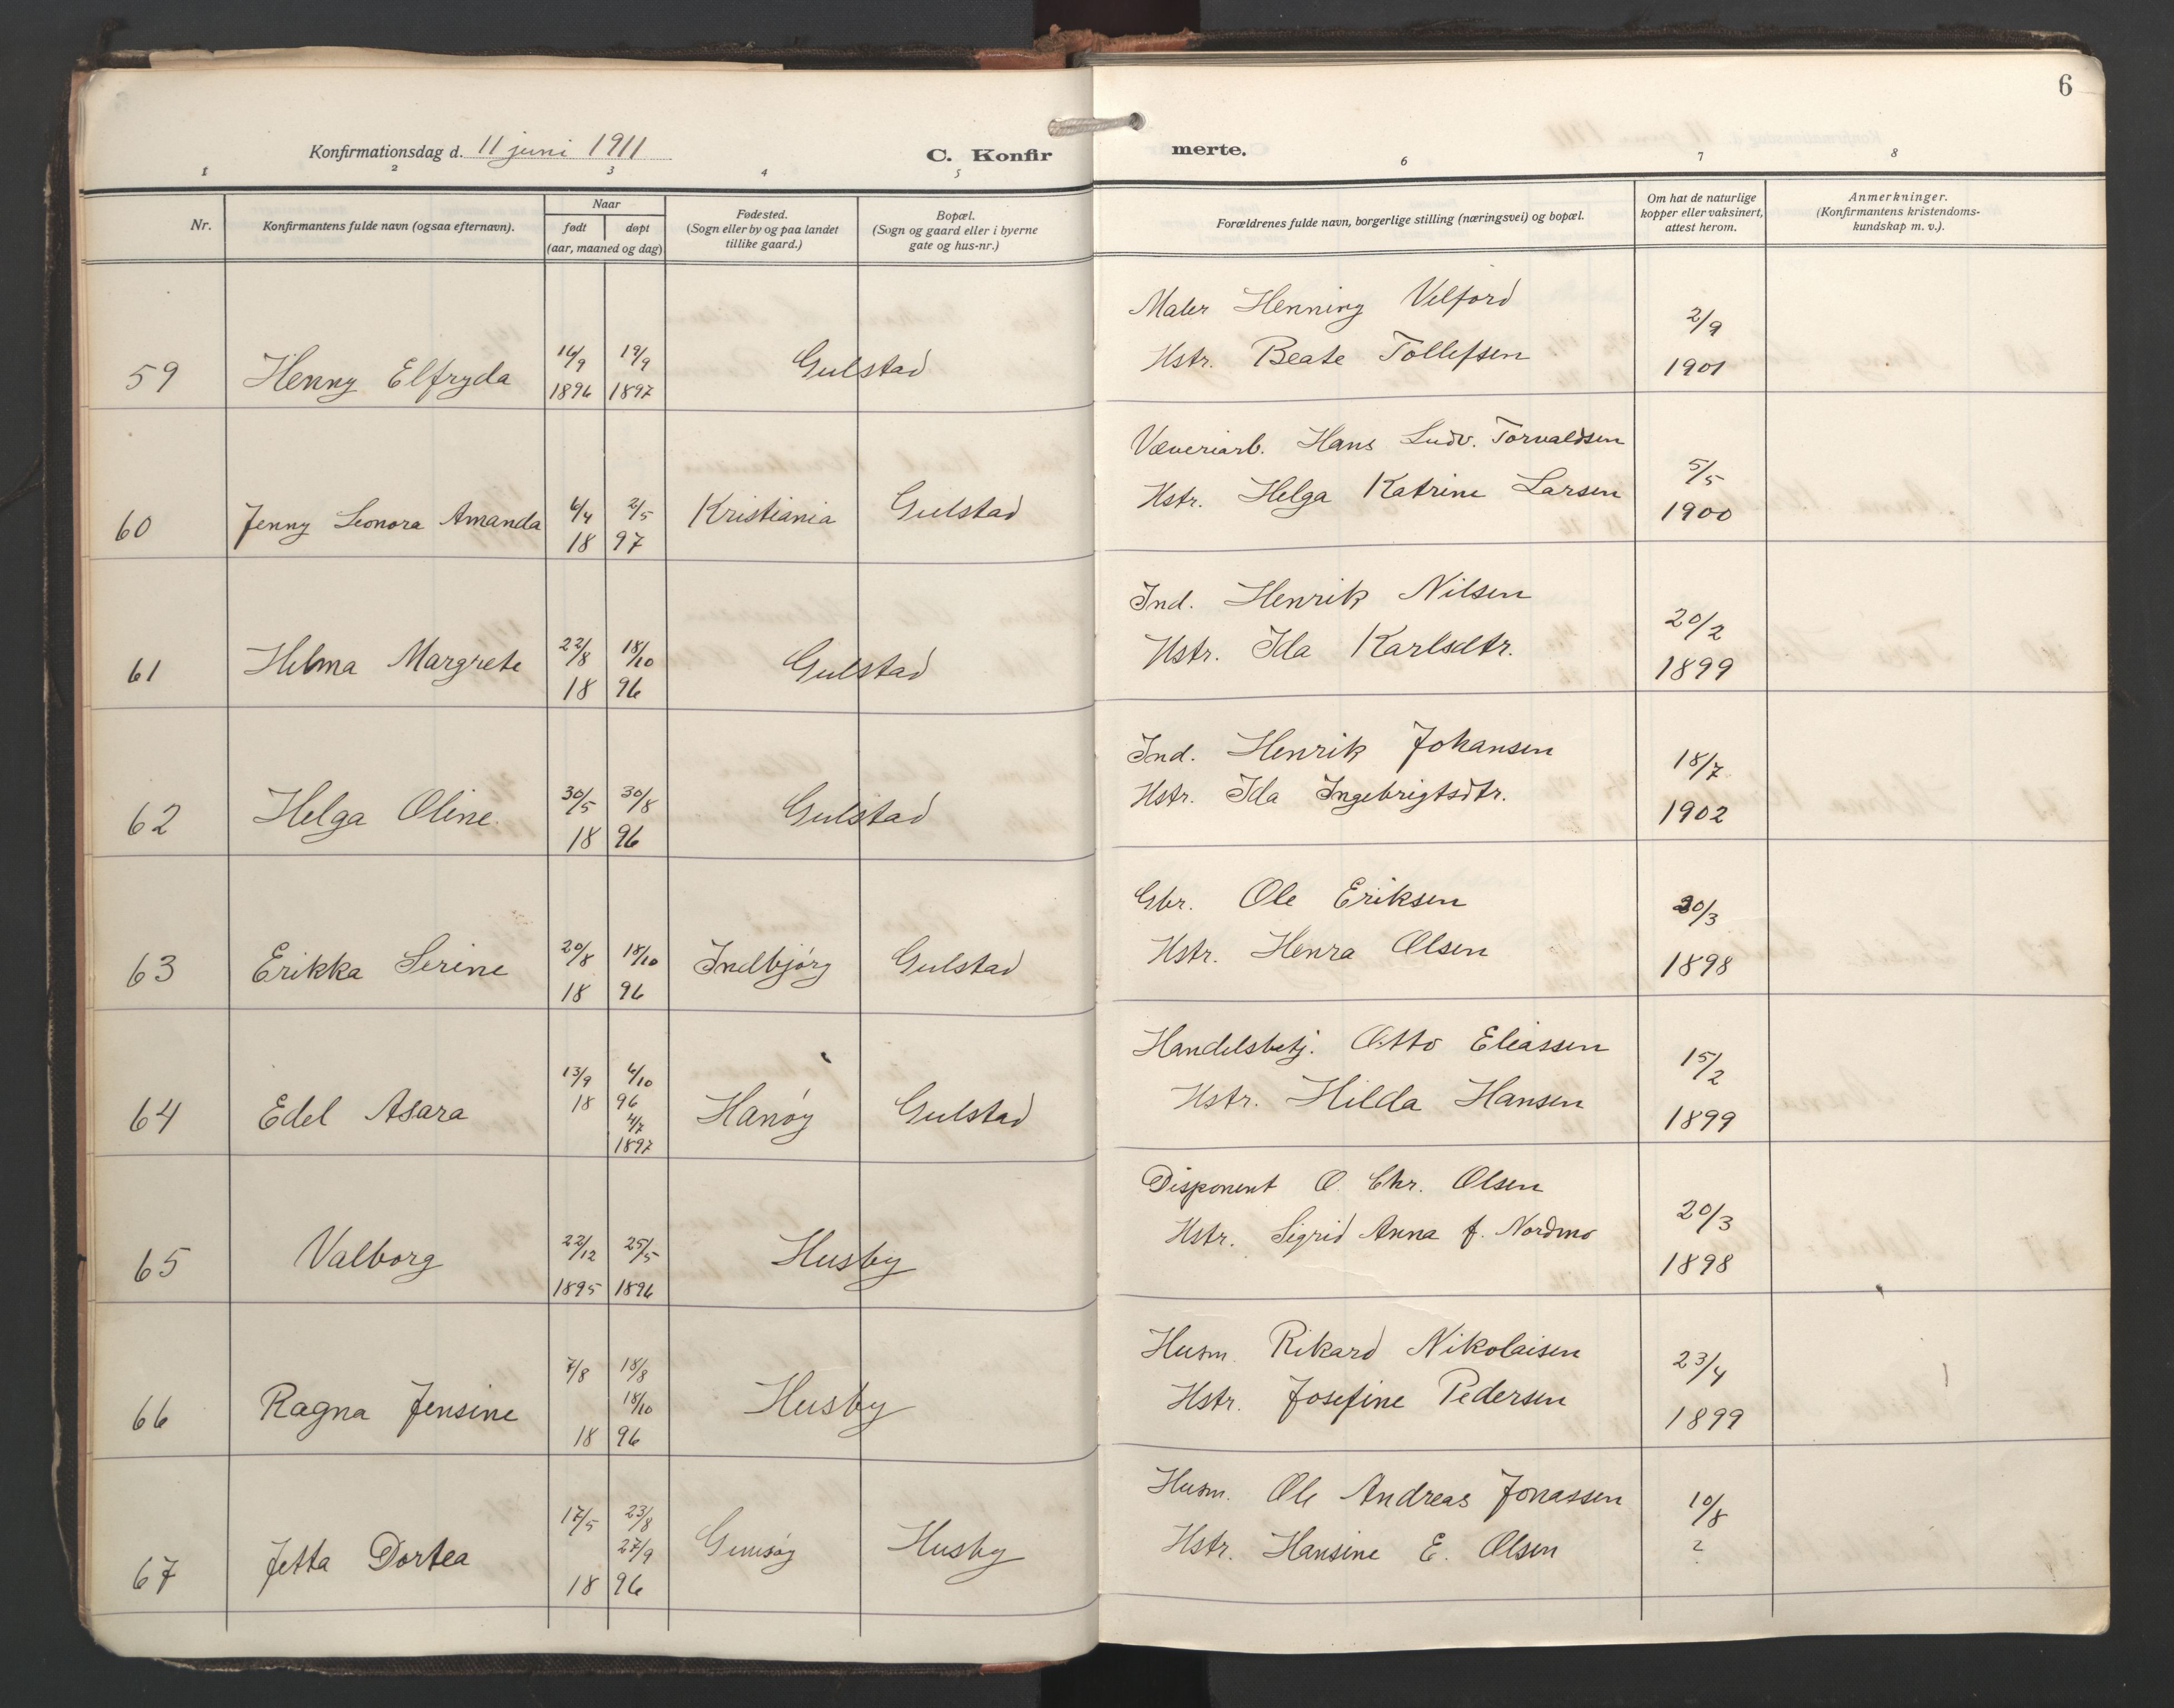 6
Konfirmationsdag d. 11 juni 1911
C. Konfir
merte.
1 2 3 4 5 6 7 8
Nr.
Konfirmantens fulde navn (ogsaa efternavn).
Naar
født døpt
(aar, maaned og dag)
Fødested.
(Sogn eller by og paa landet
tillike gaard.)
Bopæl.
(Sogn og gaard eller i byerne
gate og hus-nr.)
Forældrenes fulde navn, borgerlige stilling (næringsvei) og bopæl.
Om hat de naturlige
kopper eller vaksinert,
attest herom.
Anmerkninger.
(Konfirmantens kristendoms-
kundskap m. v.).
Maler Henning Velford 2/9
59 Henny Elfryda 16/9 19/9 Gulstad Hstr. Beate Tollefsen
1896 1897 1901
Væveriarb. Hans Ludv. Torvaldsen 5/5
60 Jenny Leonora Amanda 6/4 2/5 Kristiania Gulstad Hstr. Helga Katrine Larsen
18 97 1900
Ind. Henrik Nilsen 20/2
61 Helma Margrete 22/8 18/10 Gulstad Hstr. Ida Karlsdtr.
18 96 1899
Ind. Henrik Johansen 18/7
62 Helga Oline 30/5 30/8 Gulstad Hstr. Ida Ingebrigtsdtr.
18 96 1902
Gbr. Ole Eriksen 20/3
63 Erikka Serine 20/8 18/10 Indbjörg Gulstad Hstr. Henra Olsen
18 96 1898
Handelsbetj. Otto Eliassen 15/2
13/9 4/10
18 96
64 Edel Asara 4/7 Hanöy Gulstad Hstr. Hilda Hansen
1897 1899
Disponent O. Chr. Olsen 20/3
65 Valborg 22/12 25/5 Husby Hstr. Sigrid Anna f. Nordmo
1895 1896 1898
Husm. Rikard Nikolaisen 23/4
7/8 18/8
66 Ragna Jensine 18/10 Husby Hstr. Josefine Pedersen
18 96 1899
Husm. Ole Andreas Jonassen 10/8
17/5 23/8
67 Jetta Dortea 27/9 Gimsöy Husby Hstr. Hansine E. Olsen ?
18 96